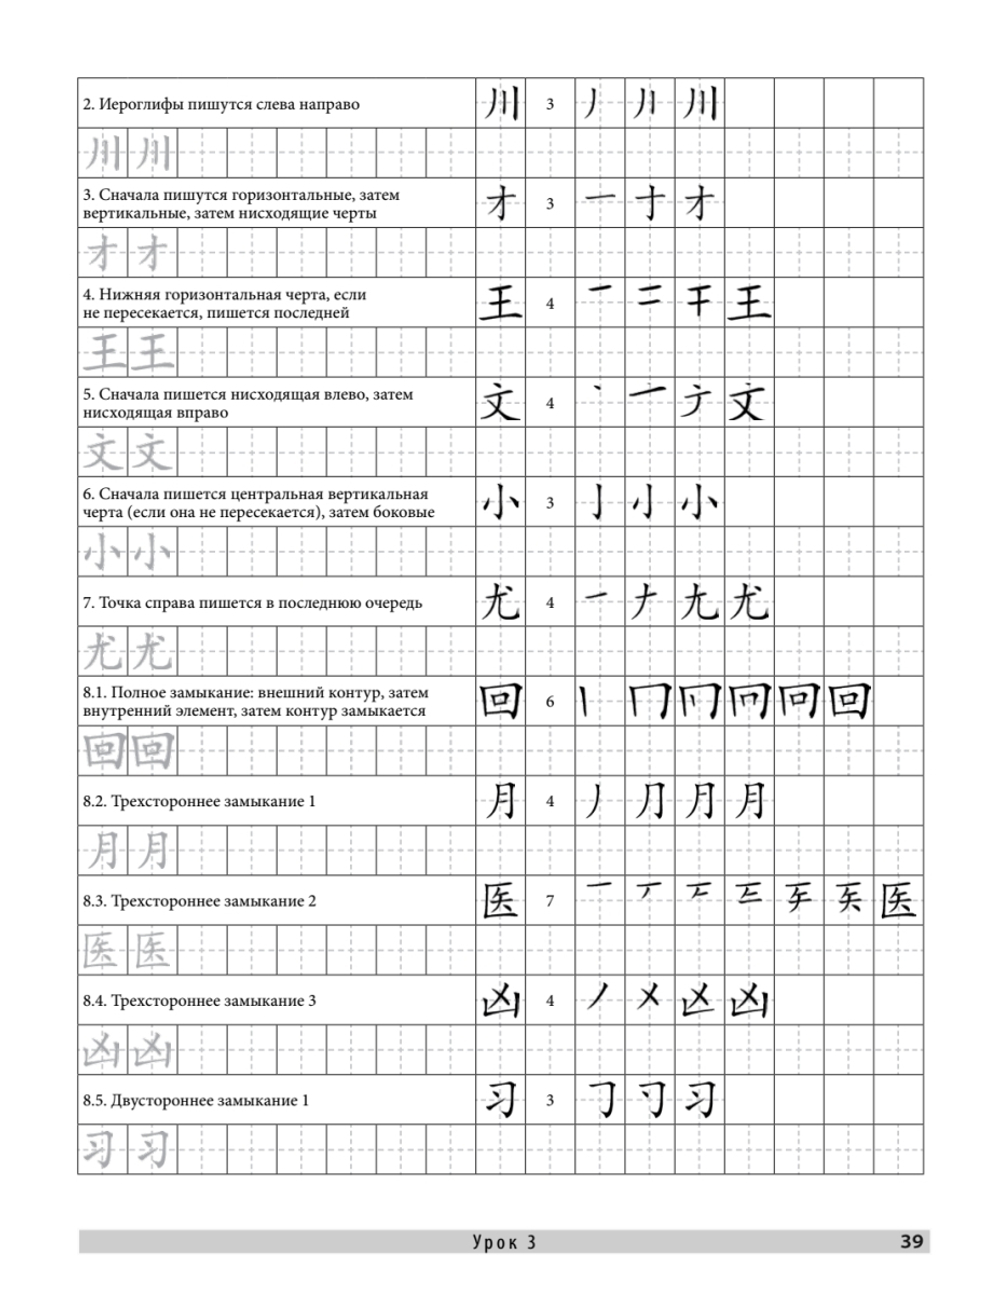 2. Иероглифы пишутся слева направо 川 3 丿 川
川 川
3. Сначала пишутся горизонтальные, затем
вертикальные, затем нисходящие черты 才 3 一 十 才
才 才
4. Нижняя горизонтальная черта, если
не пересекается, пишется последней 王 4 一 二 干 王
王 王
5. Сначала пишется нисходящая влево, затем
нисходящая вправо 文 4 丶 一 文
文 文
6. Сначала пишется центральная вертикальная
черта (если она не пересекается), затем боковые 小 3 亅 小
小 小
7. Точка справа пишется в последнюю очередь 尤 4 一 𠂇 尢 尤
尤 尤
8.1. Полное замыкание: внешний контур, затем
внутренний элемент, затем контур замыкается 回 6 丨 冂 回
回 回
8.2. Трехстороннее замыкание 1 月 4 丿 月
月 月
8.3. Трехстороннее замыкание 2 医 7 一 医
医 医
8.4. Трехстороннее замыкание 3 凶 4 丿 㐅 凶
凶 凶
8.5. Двустороннее замыкание 1 习 3 习
习 习
Урок 3 39